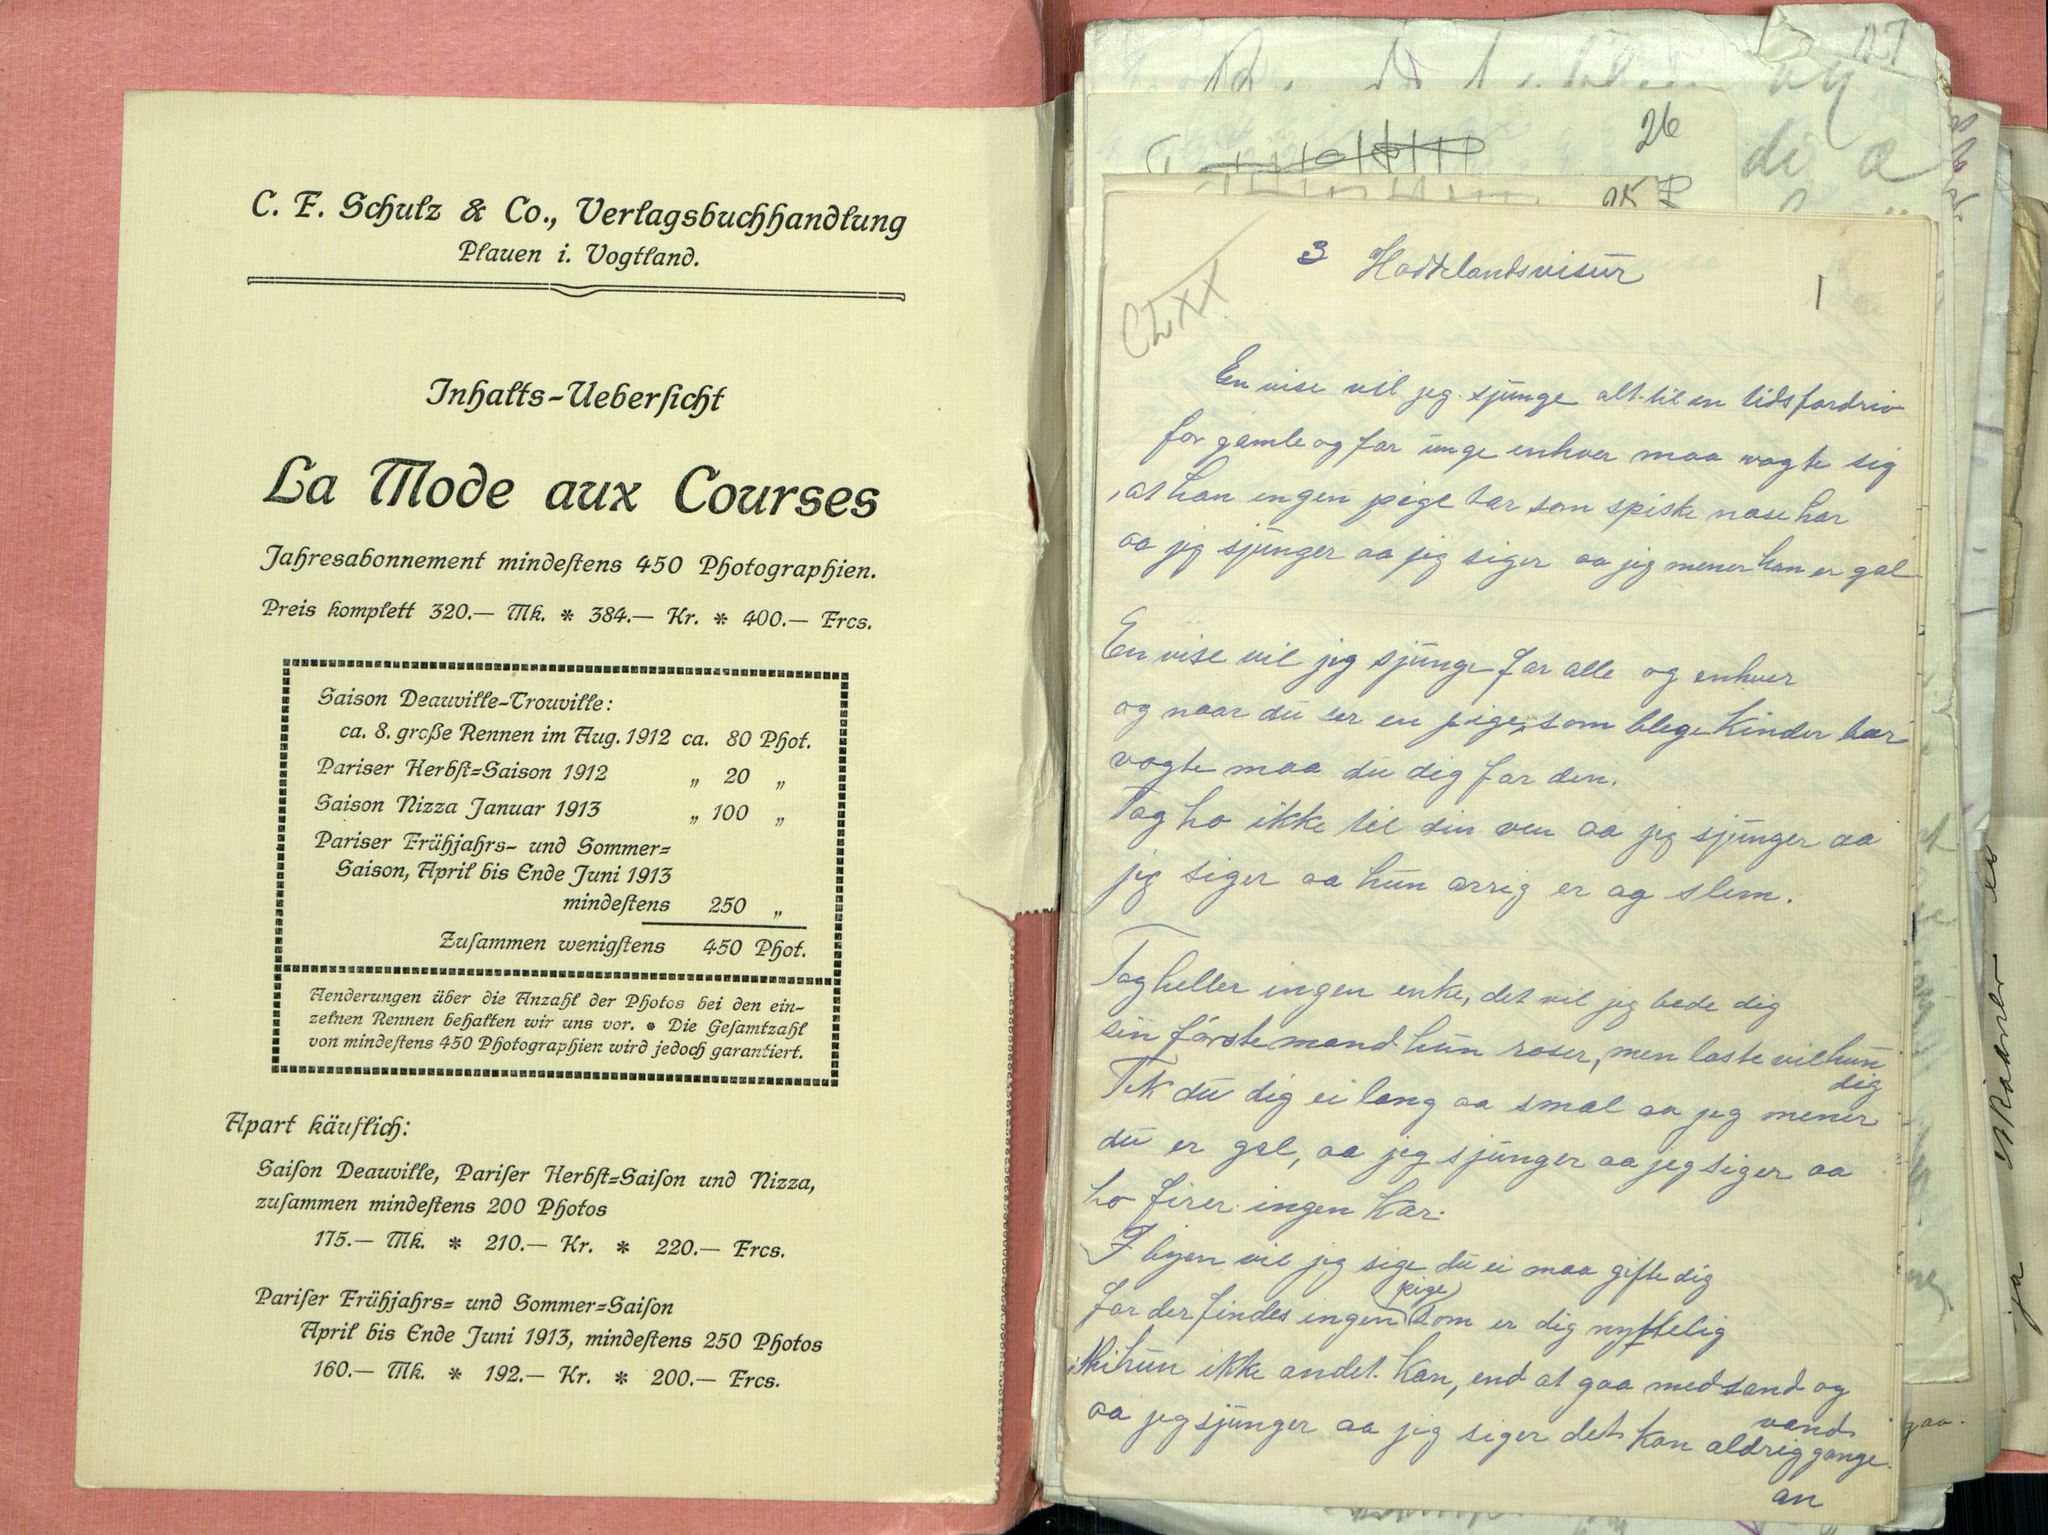 C. F. Schulz & Co., Verlagsbuchhandlung
Plauen i. Vogtland.
Inhalts-Uebersicht
La Mode aux Courses
Jahresabonnement mindestens 450 Photographien.
Preis komplett 320.— Mk. * 384.— Kr. * 400.— Frcs.
Saison Deauville-Trouville:
ca. 8. große Rennen im Aug. 1912 ca. 80 Phot.
Pariser Herbst-Saison 1912 „ 20 „
Saison Nizza Januar 1913 „ 100 „
Pariser Frühjahrs- und Sommer-
Saison, April bis Ende Juni 1913
mindestens 250 „
Zusammen wenigstens 450 Phot.
Aenderungen über die Anzahl der Photos bei den ein-
zelnen Rennen behalten wir uns vor. * Die Gesamtzahl
von mindestens 450 Photographien wird jedoch garantiert.
Apart käuflich:
Saison Deauville, Pariser Herbst-Saison und Nizza,
zusammen mindestens 200 Photos
175.— Mk. * 210.— Kr. * 220.— Frcs.
Pariser Frühjahrs- und Sommer-Saison
April bis Ende Juni 1913, mindestens 250 Photos
160.— Mk. * 192.— Kr. * 200.— Frcs.
27
26
di
3 Haddelandsvisur
1
En vise vil jeg sjunge alt til en tidsfordriv
for gamle og for unge enhver maa vogte sig
at han ingen pige tar som spiske nase har
aa jeg sjunger aa jeg siger aa jeg mener han er gal
En vise vil jeg sjunge for alle og enhver
og naar du ser en pige, som blege kinder bær
vogte maa du dig for den.
Tag ho ikke til din ven aa jeg sjunger aa
jeg siger aa hun arrig er og slem.
Tag heller ingen enke, det vil jeg bede dig
sin förste mand hun roser, men laste vil hun
dig
Tek du dig ei lang aa smal aa jeg mener
du er gal, aa jeg sjunger aa jeg siger aa
ho firer ingen kar.
I byen vil jeg sige du ei maa gifte dig
for der findes ingen pige som er dig nyttelig
thi hun ikke andet kan, end at gaa med sand og
vand
aa jeg sjunger aa jeg siger det kan aldrig gange
an
gaa.
ja